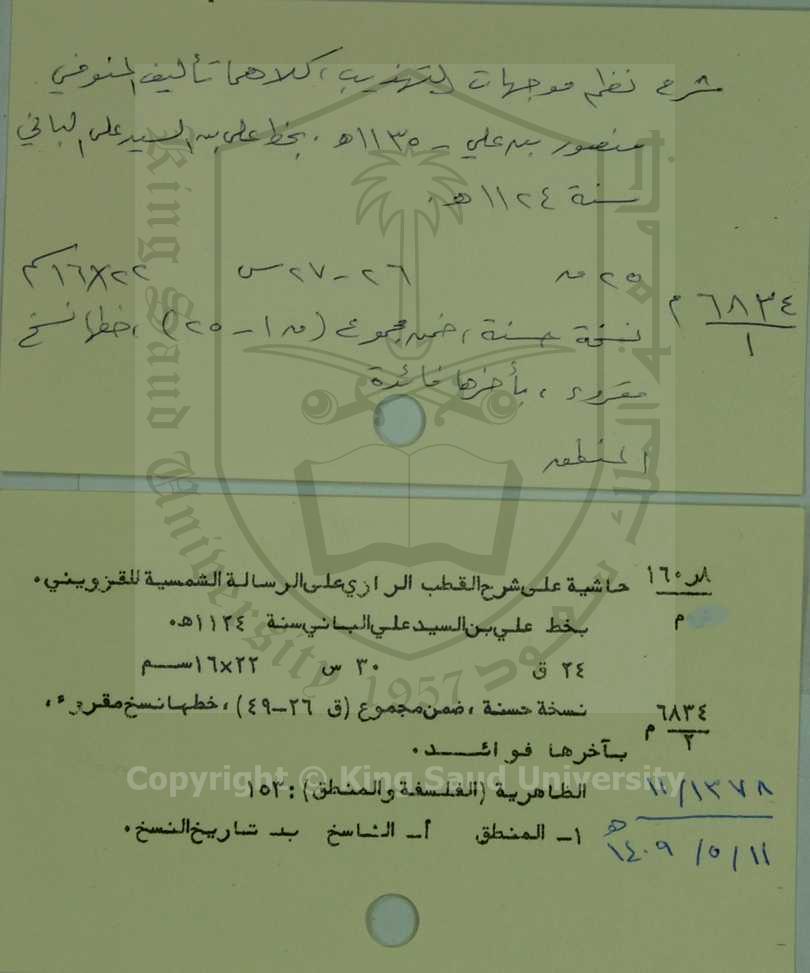 شرح نظم موجهات التهذيب ، كلاهما تأليف المنوفي
منصور بن علي - ١١٣٥هـ . بخط علي بن السيد علي الباني
سنة ١١٢٤هـ .
٢٥ ق ٢٦-٢٧ س ٢٢×١٦ سم
٦٨٣٤ م
١
نسخة حسنة ، ضمن مجموع (ق ١-٢٥) ، خطها نسخ
مقروء ، بآخرها فائدة
المنطق
١٦٠ر٨
م
حاشية على شرح القطب الرازي على الرسالة الشمسية للقزويني .
بخط علي بن السيد علي الباني سنة ١١٢٤هـ .
٢٤ ق ٣٠ س ٢٢×١٦ سم
٦٨٣٤ م
٢
نسخة حسنة ، ضمن مجموع (ق ٢٦-٤٩) ، خطها نسخ مقروء ،
بآخرها فوائد .
الظاهرية (الفلسفة والمنطق) : ١٥٣
١- المنطق أ- الناسخ ب- تاريخ النسخ .
١١/١٣٧٨
١٤٠٩/٥/١١هـ
King Saud University
1957
Copyright © King Saud University